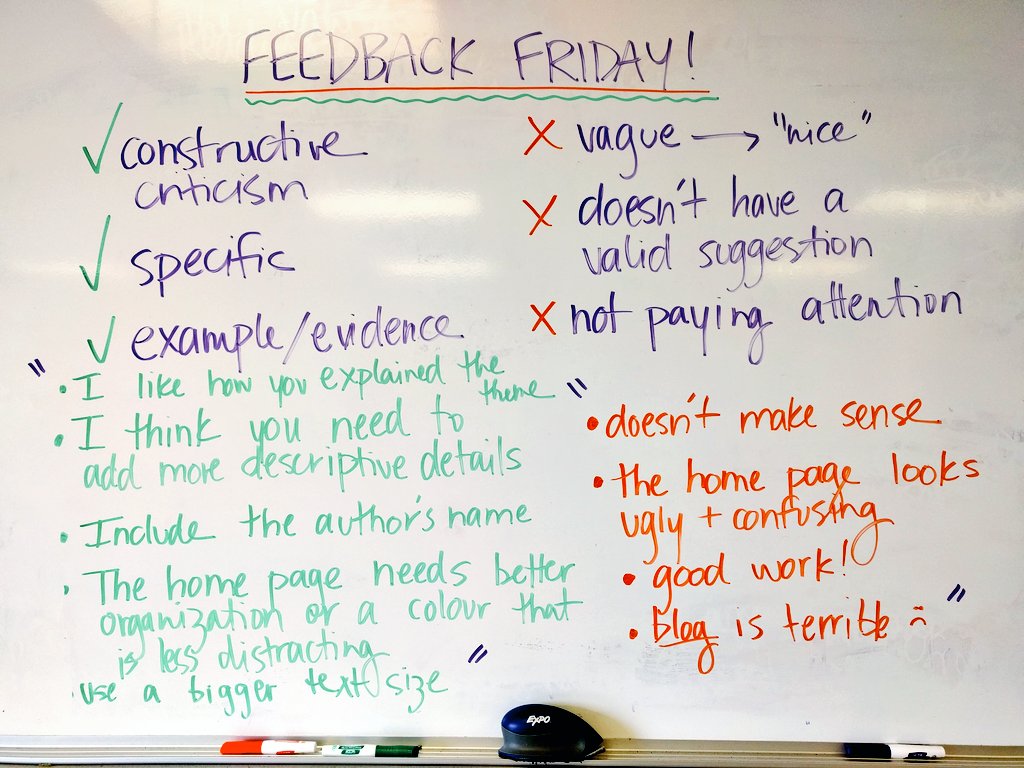 FEEDBACK FRIDAY!
✓ constructive
criticism
✓ specific
✓ example/evidence
"
• I like how you explained the
theme
• I think you need to
add more descriptive details
• Include the author's name
• The home page needs better
organization or a colour that
is less distracting
• use a bigger text size
"
X vague → "nice"
X doesn't have a
valid suggestion
X not paying attention
"
• doesn't make sense
• the home page looks
ugly + confusing
• good work!
• blog is terrible :(
"
EXPO